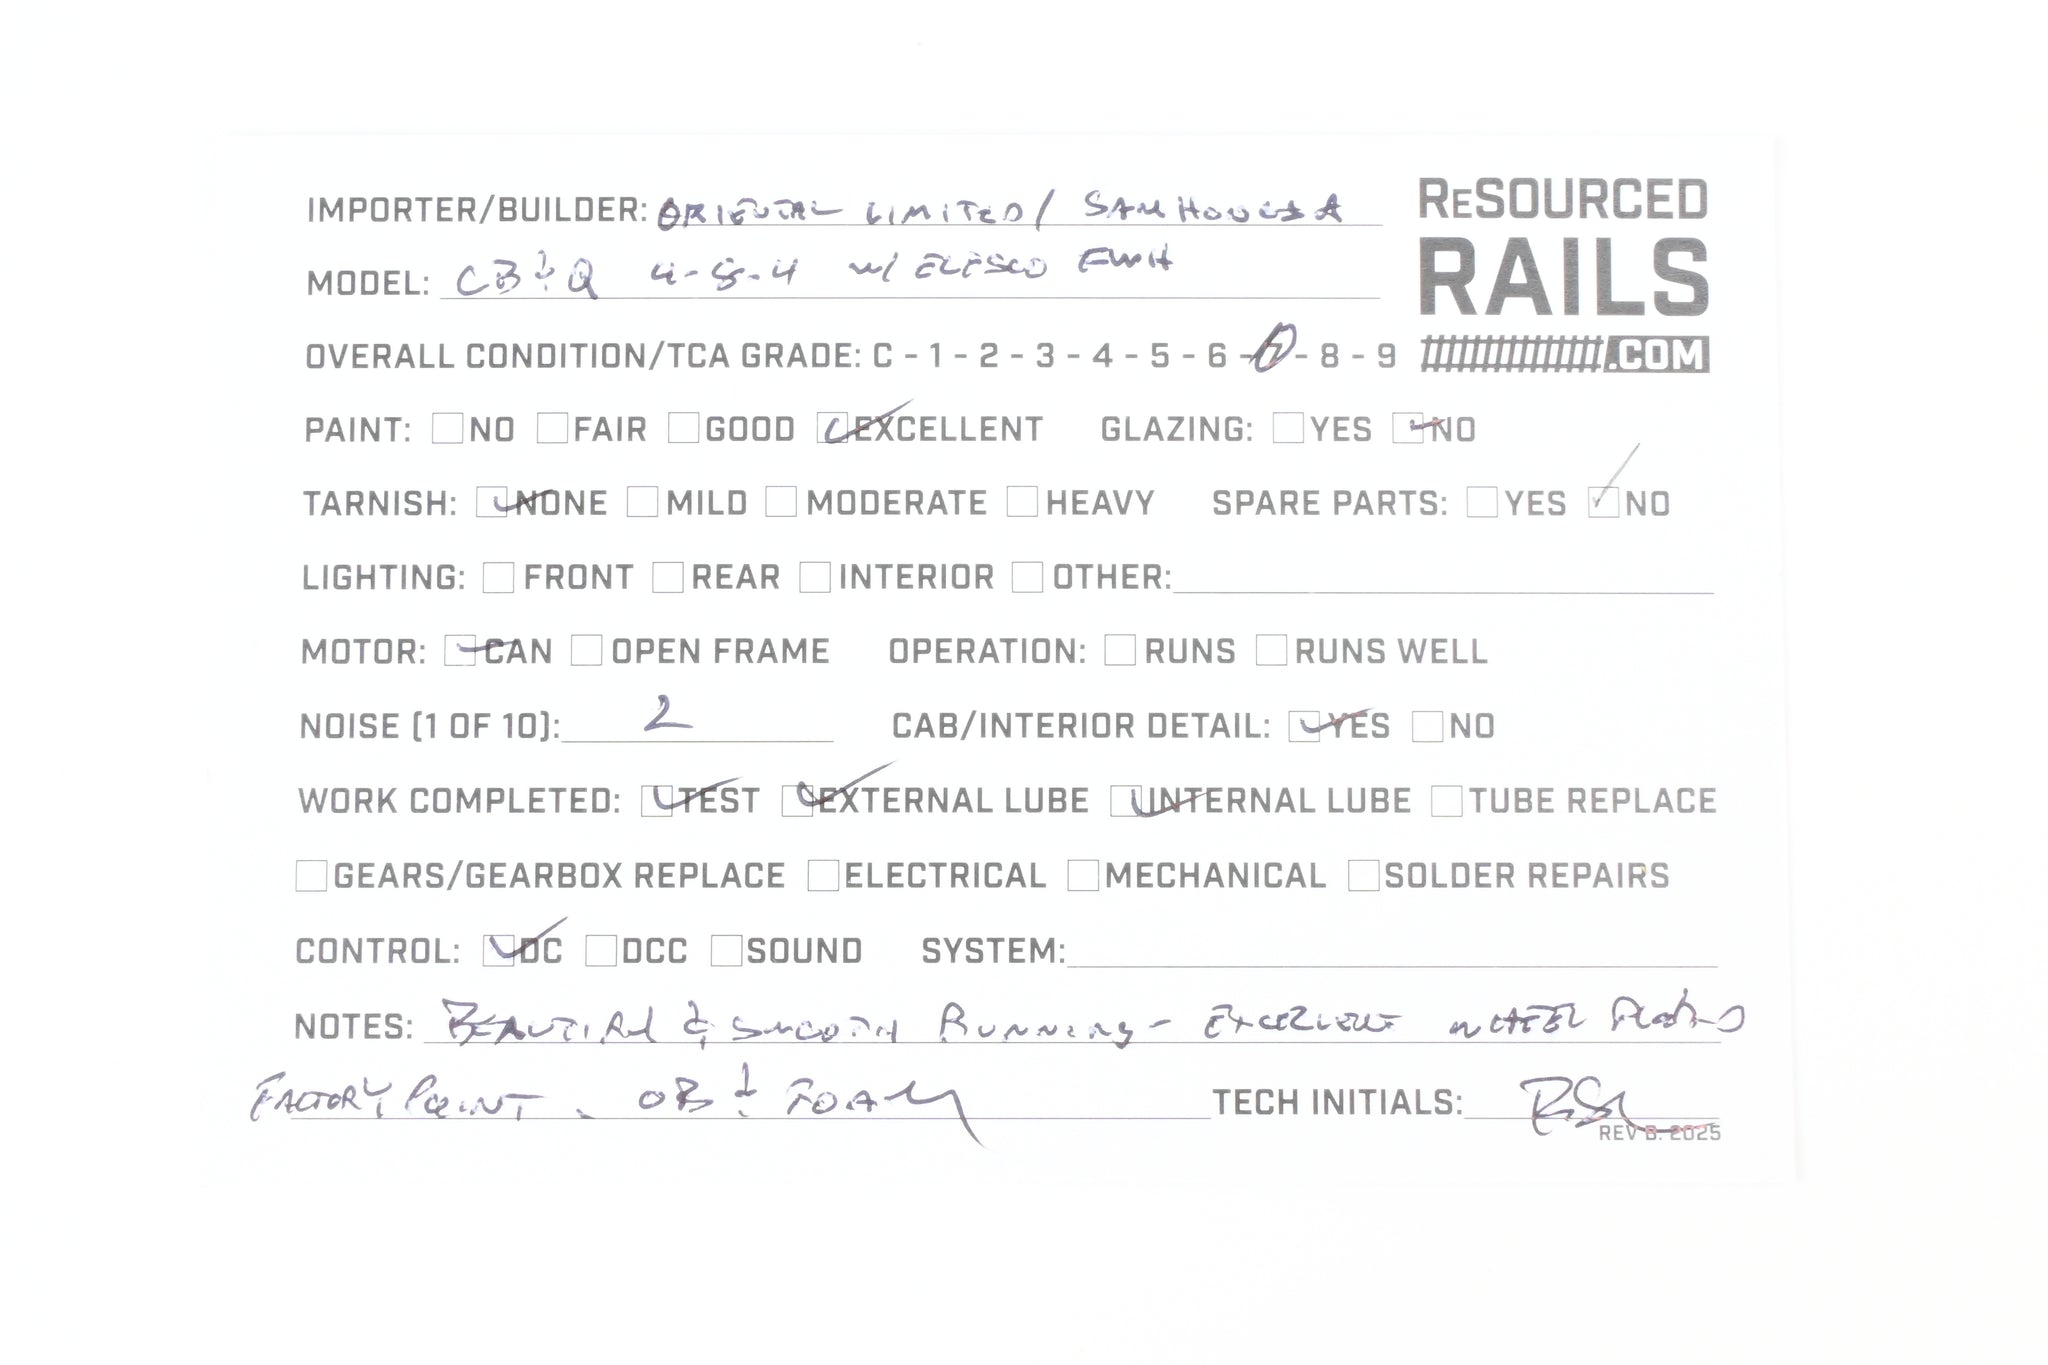 IMPORTER/BUILDER: ORIENTAL LIMITED / SAMHONGSA
RESOURCED
RAILS
.COM
MODEL: CB&Q 4-8-4 w/ ELESCO FWH
OVERALL CONDITION/TCA GRADE: C - 1 - 2 - 3 - 4 - 5 - 6 - 7 - 8 - 9
PAINT: NO FAIR GOOD EXCELLENT GLAZING: YES NO
TARNISH: NONE MILD MODERATE HEAVY SPARE PARTS: YES NO
LIGHTING: FRONT REAR INTERIOR OTHER:
MOTOR: CAN OPEN FRAME OPERATION: RUNS RUNS WELL
NOISE (1 OF 10): 2 CAB/INTERIOR DETAIL: YES NO
WORK COMPLETED: TEST EXTERNAL LUBE INTERNAL LUBE TUBE REPLACE
GEARS/GEARBOX REPLACE ELECTRICAL MECHANICAL SOLDER REPAIRS
CONTROL: DC DCC SOUND SYSTEM:
NOTES: BEAUTIFUL & SMOOTH RUNNING - EXCELLENT WHEEL
FACTORY PAINT. OB & FOAM TECH INITIALS:
REV B. 2025